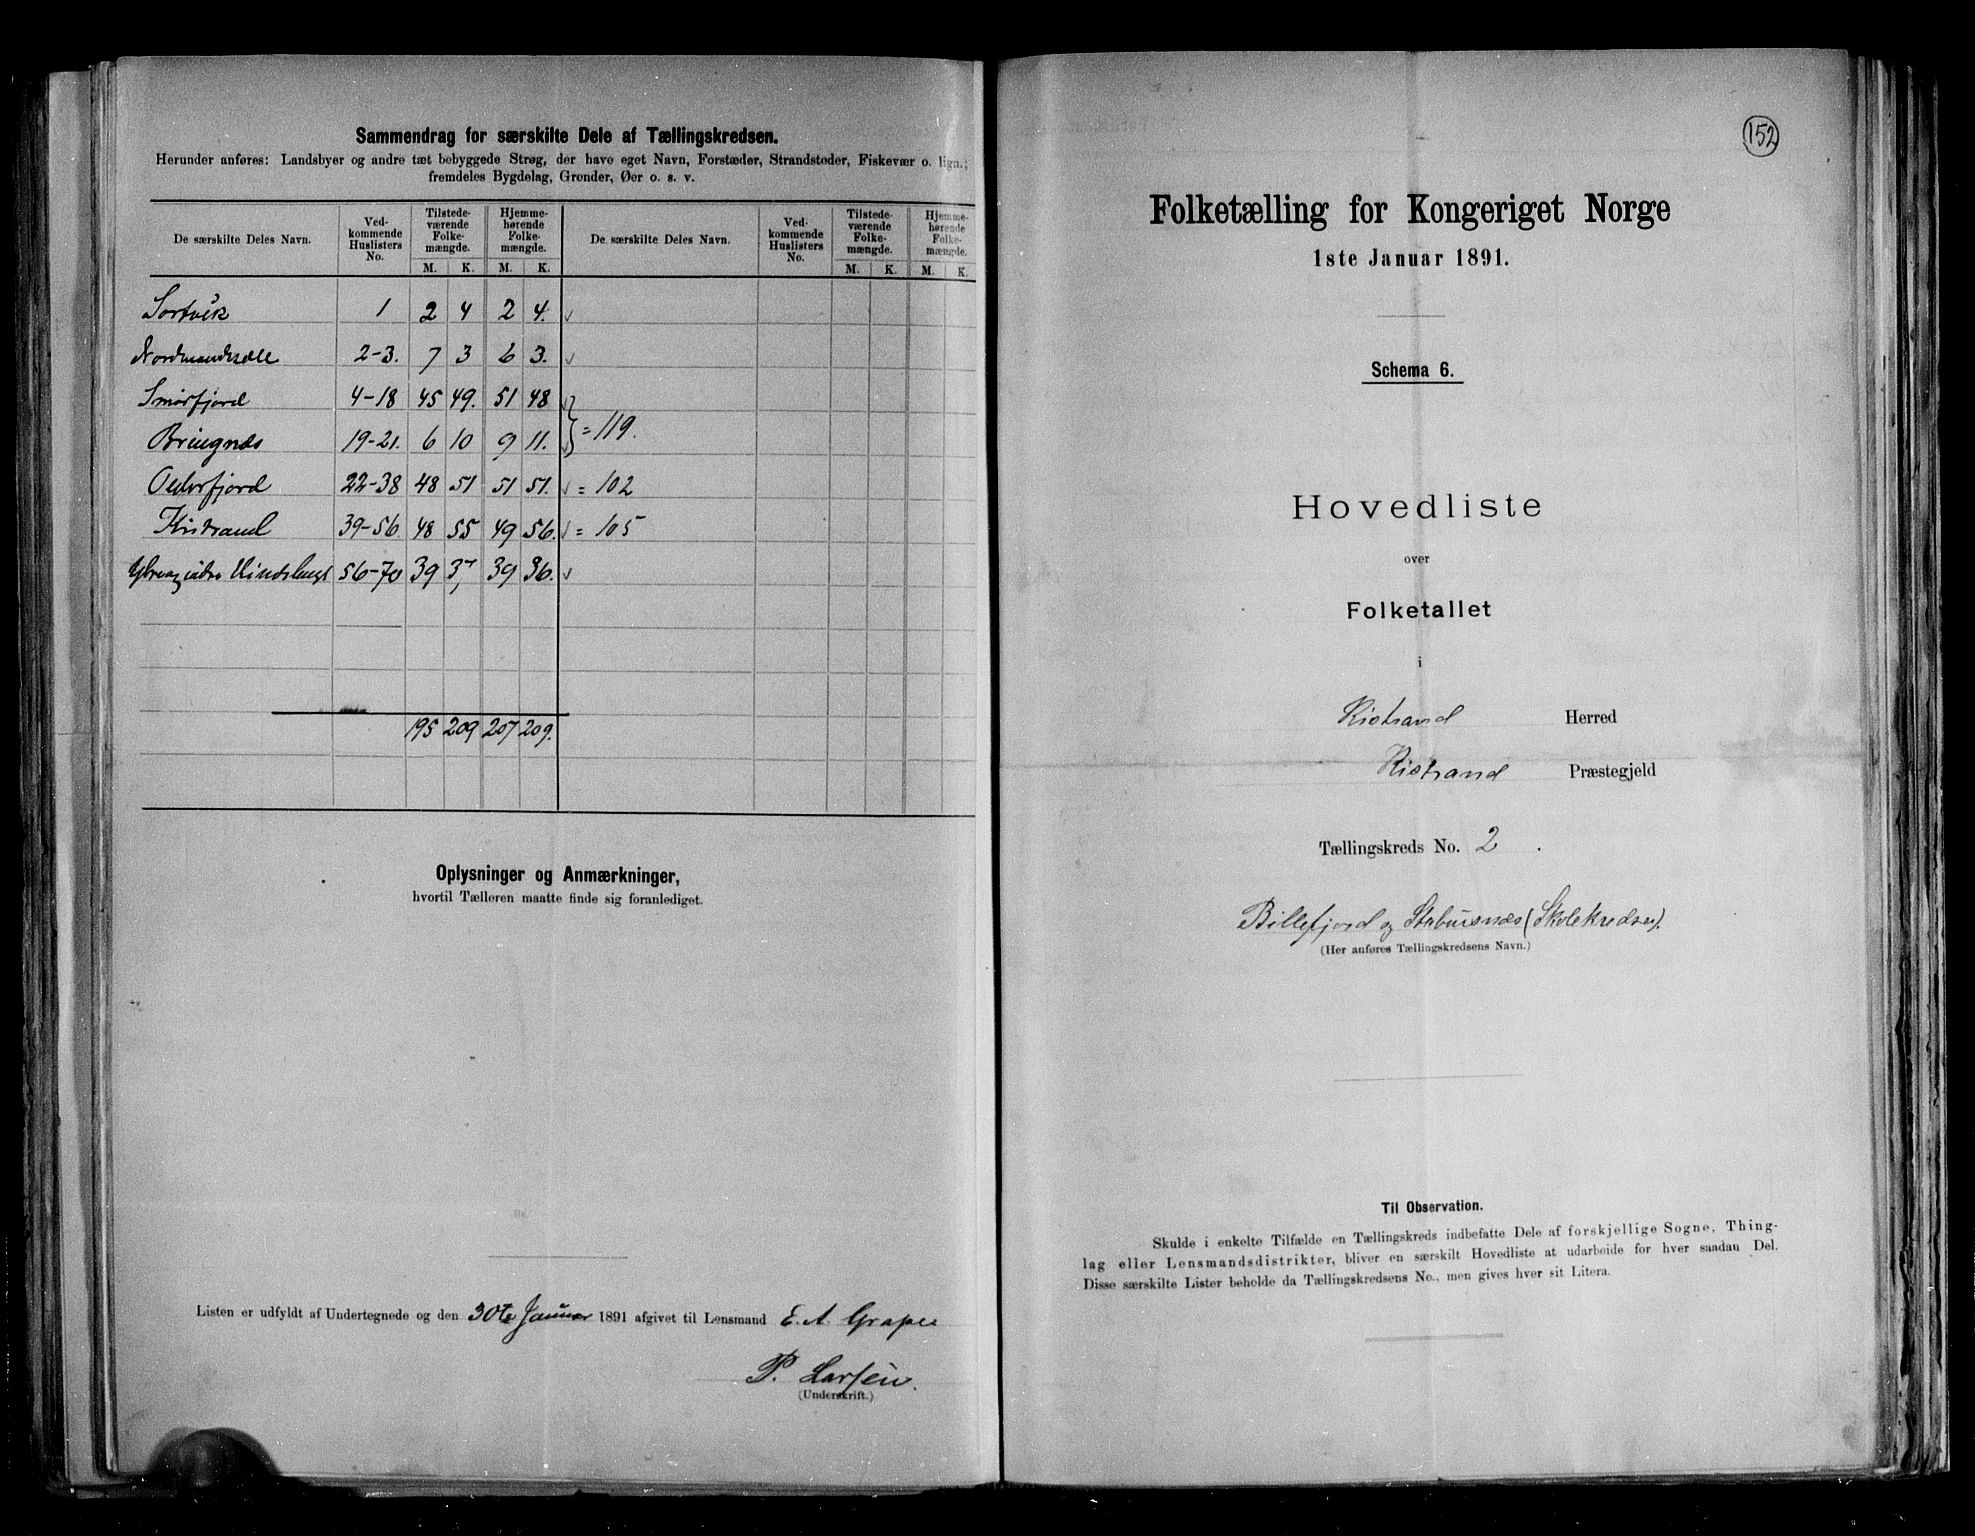 Sammendrag for særskilte Dele af Tællingskredsen.
Herunder anføres: Landsbyer og andre tæt bebyggede Strøg, der have eget Navn, Forstæder, Strandsteder, Fiskevær o. lign.;
fremdeles Bygdelag, Grender, Øer o. s. v.
De særskilte Deles Navn. Vedkommende Huslisters No. Tilstedeværende Folkemængde. M. K. Hjemmehørende Folkemængde. M. K. De særskilte Deles Navn. Vedkommende Huslisters No. Tilstedeværende Folkemængde. M. K. Hjemmehørende Folkemængde. M. K.
Sortvik 1 2 4 2 4.
2-3. 7 3 6 3.
Smørfjord 4-18 45 49. 51 48
Bringnæs 19-21. 6 10 9 11. } = 119.
Olderfjord 22-38 48 51 51 51. = 102
Kistrand 39-56. 48 55 49 56. = 105
56-70 39 37 39 36.
195 209 207 209.
Oplysninger og Anmærkninger,
hvortil Tælleren maatte finde sig foranlediget.
Listen er udfyldt af Undertegnede og den 30te Januar 1891 afgivet til Lensmand E. A Grape
P. Larsen.
(Underskrift.)
152
Folketælling for Kongeriget Norge
1ste Januar 1891.
Schema 6.
Hovedliste
over
Folketallet
i
Kistrand Herred
Kistrand Præstegjeld
Tællingskreds No. 2.
Billefjord og Stabursnæs (Skolekredser).
(Her anføres Tællingskredsens Navn.)
Til Observation.
Skulde i enkelte Tilfælde en Tællingskreds indbefatte Dele af forskjellige Sogne, Thing-
lag eller Lensmandsdistrikter, bliver en særskilt Hovedliste at udarbeide for hver saadan Del.
Disse særskilte Lister beholde da Tællingskredsens No., men gives hver sit Litera.